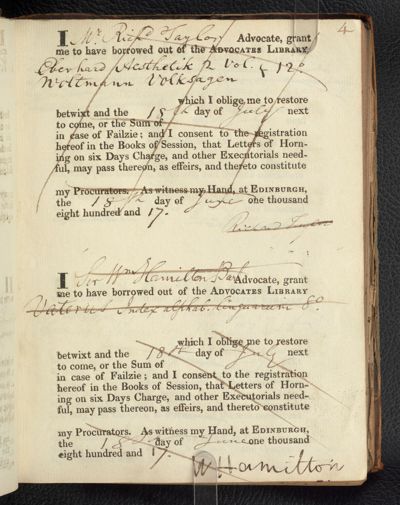 4
I Mr. Richd Taylor Advocate, grant
me to have borrowed out of the ADVOCATES LIBRARY
Eberhard Aesthetik 2 Vol. 12o
Woltmann Volksagen
which I oblige me to restore
betwixt and the 18th day of July next
to come, or the Sum of
in case of Failzie; and I consent to the registration
hereof in the Books of Session, that Letters of Horn-
ing on six Days Charge, and other Executorials need-
ful, may pass thereon, as effeirs, and thereto constitute
my Procurators. As witness my Hand, at EDINBURGH,
the 18th day of June one thousand
eight hundred and 17.
Richard Taylor
I Sir Wm Hamilton Bart Advocate, grant
me to have borrowed out of the ADVOCATES LIBRARY
Vaterus Index alphab. linguarum 8o.
which I oblige me to restore
betwixt and the 18th day of July next
to come, or the Sum of
in case of Failzie; and I consent to the registration
hereof in the Books of Session, that Letters of Horn-
ing on six Days Charge, and other Executorials need-
ful, may pass thereon, as effeirs, and thereto constitute
my Procurators. As witness my Hand, at EDINBURGH,
the 18th day of June one thousand
eight hundred and 17.
W Hamilton